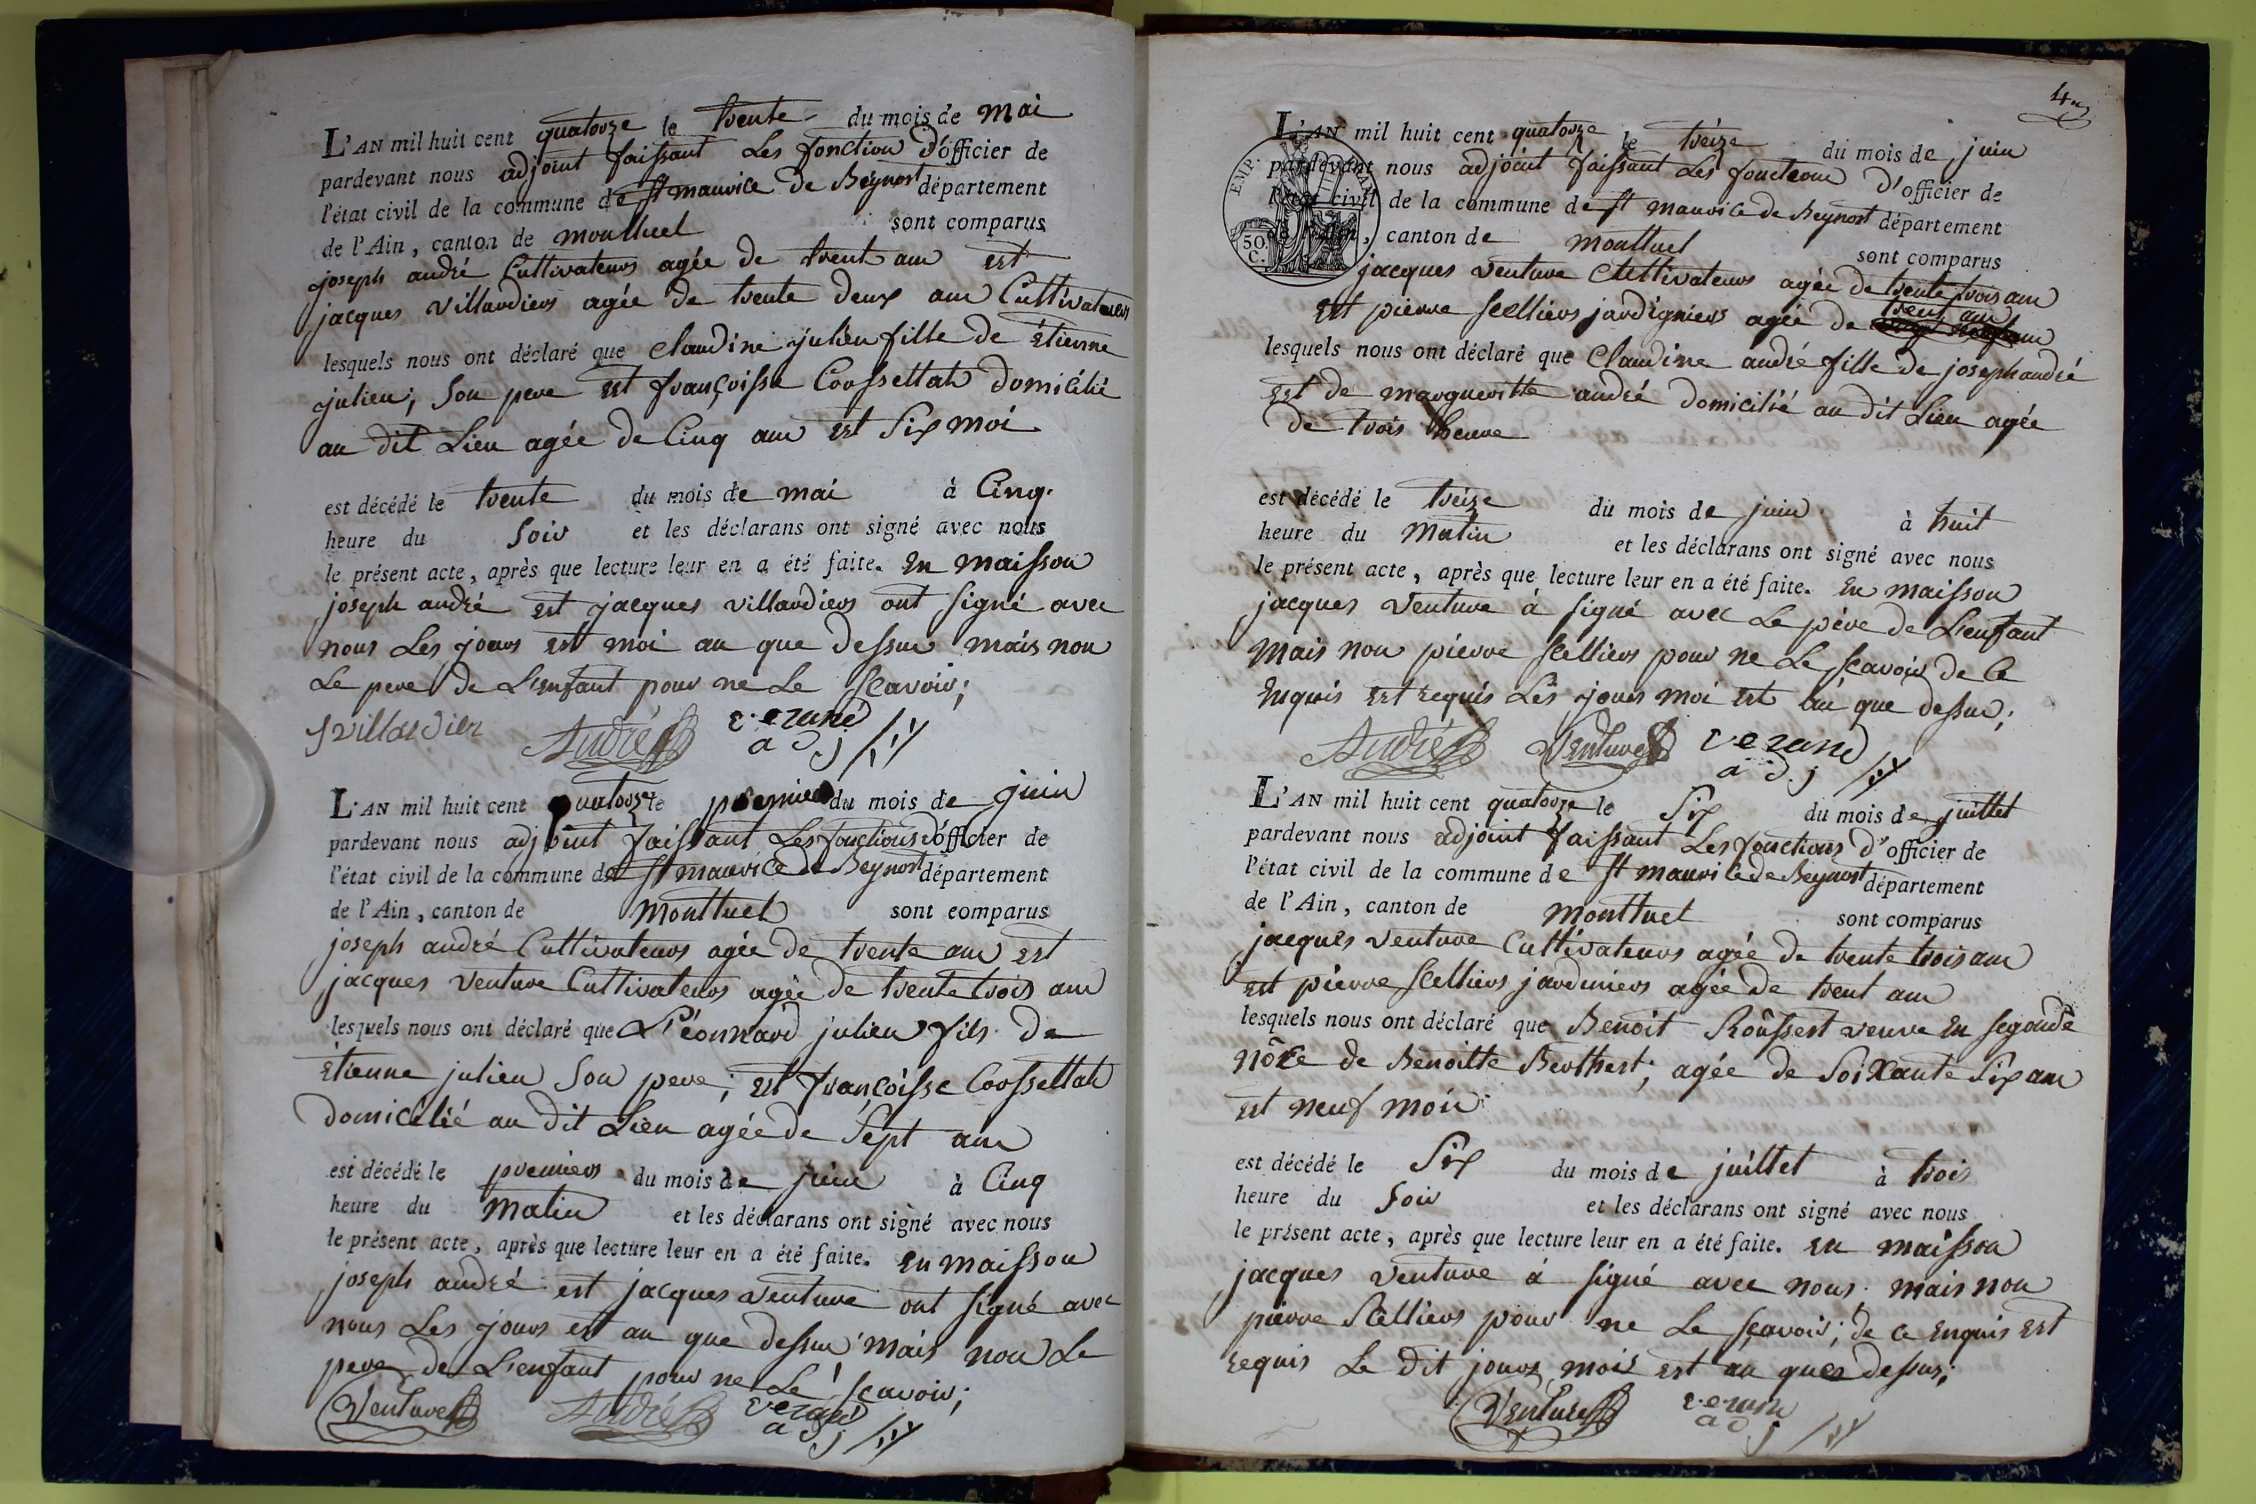 L'AN mil huit cent quatorze le trente du mois de mai
pardevant nous adjoint faissant Les fonction d'officier de
l'état civil de la commune de St maurice de Beÿnost département
de l'Ain, canton de montluel sont comparus
joseph andré Cultivateurs agée de trent ans est
jacques villardiers agée de trente deux ans Cultivateurs
lesquels nous ont déclaré que claudine julien fille de Étienne
julien; Son pere est françoisse Corssettah domicilié
au dit Lieu agée de Cinq ans est Six moi
est décédé le trente du mois de mai à Cinq.
heure du Soir et les déclarans ont signé avec nous
le présent acte, après que lecture leur en a été faite. En maisson
joseph andré est jacques villardiers ont signé avec
nous Les jours est moi an que dessus mais non
Le pere de L'enfant pour ne Le Scavoir;
jvillardier André verand
adj
L'AN mil huit cent quatorze le premier du mois de juin
pardevant nous adjoint faissant Les fonctions d'officier de
l'état civil de la commune de St maurice de Beynost département
de l'Ain, canton de Montluel sont comparus
joseph andré Cultivateurs agée de trente ans est
jacques venture Cultivateurs agée de trente trois ans
lesquels nous ont déclaré que L'éonnard julien fils de
Étienne julien Son pere; est françoisse Corssettah
domicilié au dit Lieu agée de Sept ans
est décédé le premiers du mois de juin à Cinq
heure du Matin et les déclarans ont signé avec nous
le présent acte, après que lecture leur en a été faite. En maisson
joseph andré est jacques venture ont signé avec
nous Les jours est an que dessus mais non Le
pere de L'enfant pour ne Le scavoir;
Venture André verand
adj
4
L'AN mil huit cent quatorze le treize du mois de juin
pardevant nous adjoint faissant Les fonctions d'officier de
l'état civil de la commune de St maurice de Beynost département
de l'Ain, canton de montluel sont comparus
EMP.
50
C.
jacques venture Cultivateurs agée de trente trois ans
trent ans
est pierre Scelliers jardigniers agée de
lesquels nous ont déclaré que Claudine andré fille de joseph andré
est de margueritte andré domicilié au dit Lieu agée
de trois heure
est décédé le treize du mois de juin à huit
heure du Matin et les déclarans ont signé avec nous
le présent acte, après que lecture leur en a été faite. En maisson
jacques venture à signé avec Le père de L'enfant
Mais non pierre Scelliers pour ne Le scavoir de ce
Enquis est requis Les jours moi est an que dessus;
André Venture verand
adj
L'AN mil huit cent quatorze le Six du mois de juillet
pardevant nous adjoint faissant Les fonctions d'officier de
l'état civil de la commune de St maurice de Beynost département
de l'Ain, canton de montluel sont comparus
jacques venture Cultivateurs agée de trente trois ans
est pierre Scelliers jardiniers agée de trent ans
lesquels nous ont déclaré que Benoit Roussert veuve En segonde
nôce de Benoitte Berthert; agée de Soixante Six ans
est neuf mois
est décédé le Six du mois de juillet à trois
heure du Soir et les déclarans ont signé avec nous
le présent acte, après que lecture leur en a été faite. en maisson
jacques venture à signé avec nous. mais non
pierre Scelliers pour ne Le sçavoir; de ce Enquis est
requis Le dit jours mois est an ques dessus;
Venture verand
adj